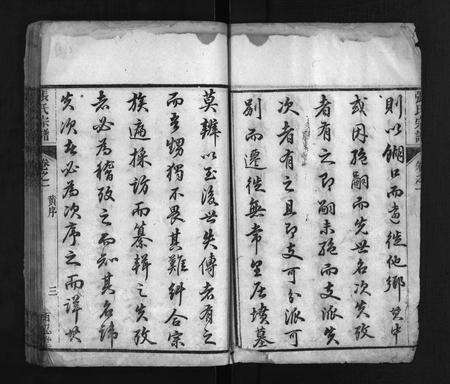 則以餬口而遷徙他鄉其中
或因絕嗣而先世名次失攷
者有之即嗣未絕而支派失
次者有之且即支可分派可
別而遷徙無常里居墳墓
莫辨以至後世失傳者有之
而吾甥獨不畏其難糾合宗
族遍採訪而纂輯之失攷
者必為稽攷之而知其名諱
失次者必為次序之而詳其
張氏宗譜 卷之一 黄序 三